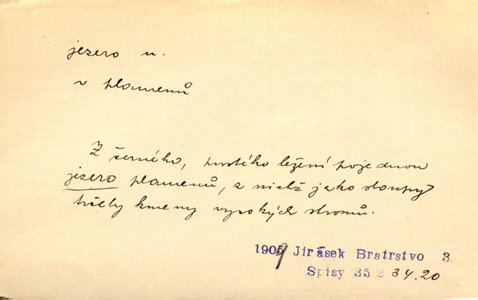 jezero n.
v plamenů
Z černého, pustého ležení pojednou
jezero plamenů, z nichž jako sloupy
trčely kmeny vysokých stromů.
1909 Jirásek Bratrstvo 3
Spisy 35 2 34.20